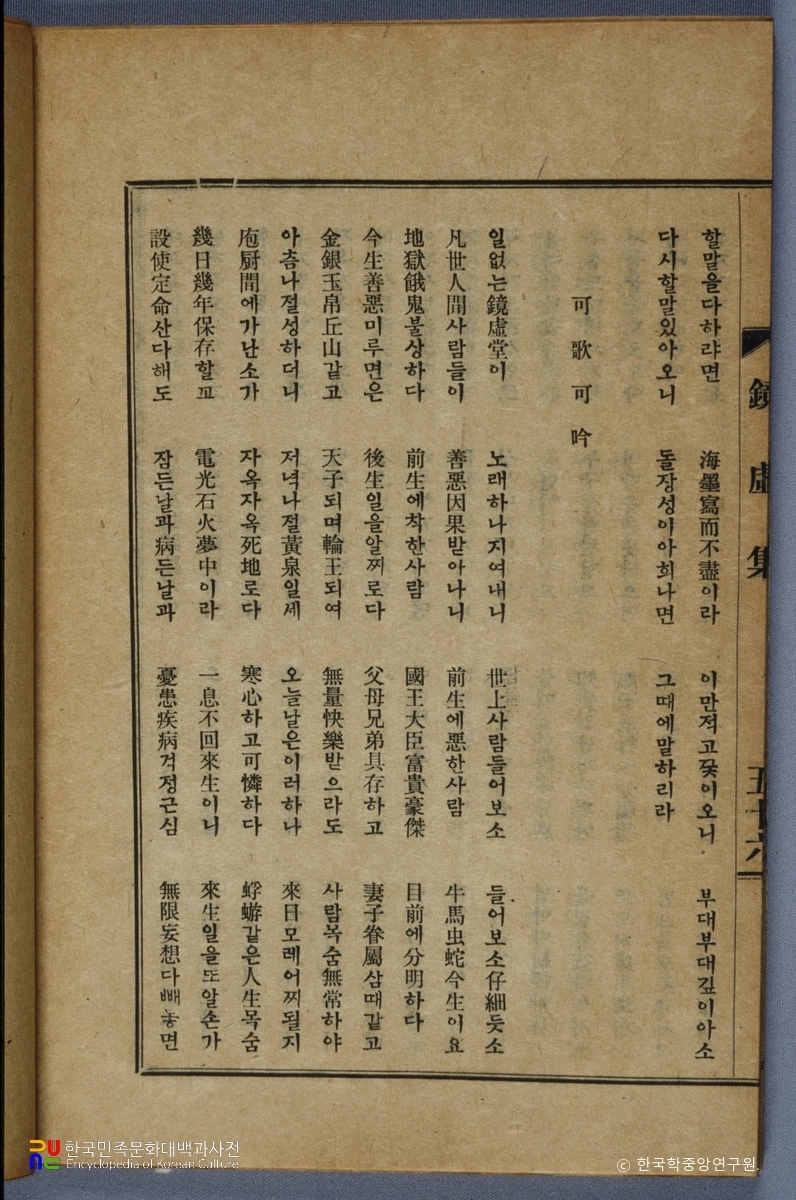 할말을다하랴면 海墨寫而不盡이라 이만적고끗이오니 부대부대깊이아소
다시할말있아오니 돌장성이아희나면 그때에말하리라
可歌可吟
일없는鏡虛堂이 노래하나지여내니 世上사람들어보소 들어보소仔細듯소
凡世人間사람들이 善惡因果받아나니 前生에惡한사람 牛馬虫蛇今生이요
地獄餓鬼불상하다 前生에착한사람 國王大臣富貴豪傑 目前에分明하다
今生善惡미루면은 後生일을알찌로다 父母兄弟具存하고 妻子眷屬삼때같고
金銀玉帛丘山같고 天子되며輪王되여 無量快樂받으라도 사람목숨無常하야
아츰나절성하더니 저녁나절黃泉일세 오늘날은이러하나 來日모레어찌될지
庖厨間에가난소가 자옥자옥死地로다 寒心하고可憐하다 蜉蝣같은人生목숨
幾日幾年保存할꼬 電光石火夢中이라 一息不回來生이니 來生일을또알손가
設使定命산다해도 잠든날과病든날과 憂患疾病걱정근심 無限妄想다빼놓면
鏡虛集 五十六
한국민족문화대백과사전
Encyclopedia of Korean Culture
© 한국학중앙연구원.